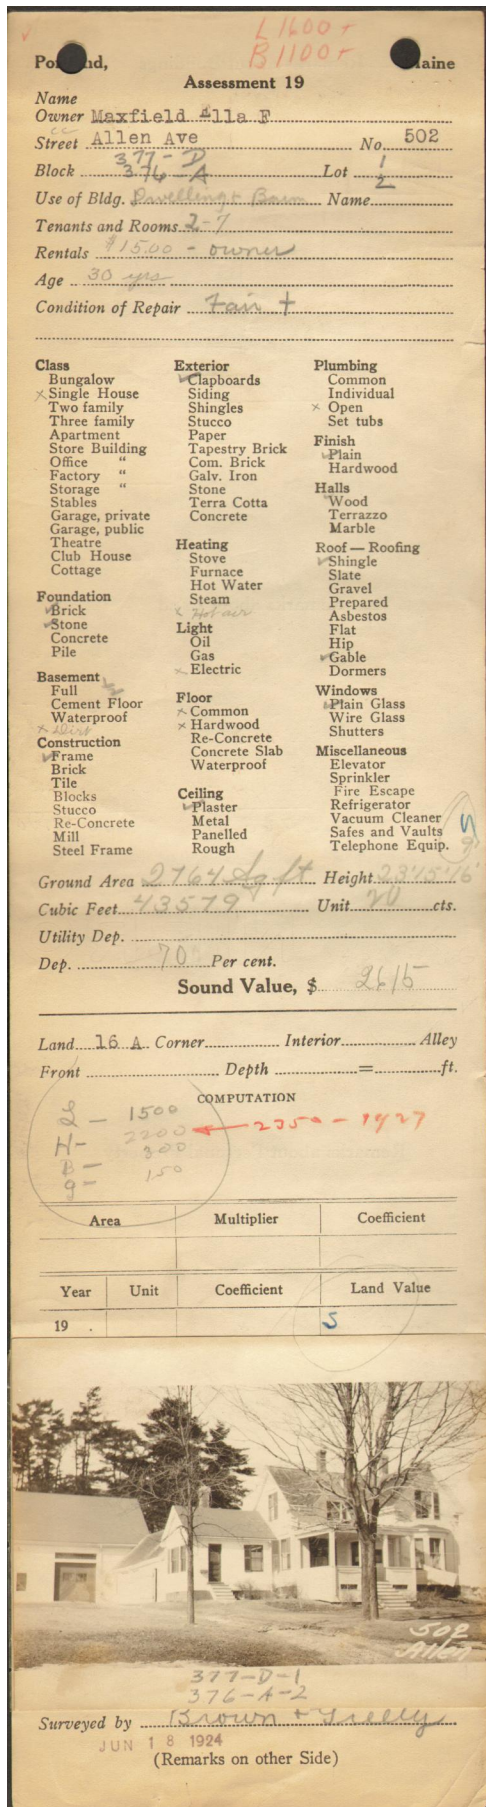 L 1600 +
B 1100 +
Po land, aine
Assessment 19
Name
Owner Maxfield Ella F
Street Allen Ave No. 502
Block 377-D Lot 1
376-A 2
Use of Bldg. Dwelling & Barn Name
Tenants and Rooms 2-7
Rentals $15.00 - owner
Age 30 yrs
Condition of Repair Fair +
Class
Bungalow
× Single House
Two family
Three family
Apartment
Store Building
Office "
Factory "
Storage "
Stables
Garage, private
Garage, public
Theatre
Club House
Cottage
Foundation
Brick
Stone
Concrete
Pile
Basement
Full 1/2
Cement Floor
Waterproof
× Dirt
Construction
Frame
Brick
Tile
Blocks
Stucco
Re-Concrete
Mill
Steel Frame
Exterior
Clapboards
Siding
Shingles
Stucco
Paper
Tapestry Brick
Com. Brick
Galv. Iron
Stone
Terra Cotta
Concrete
Heating
Stove
Furnace
Hot Water
Steam
× Hot air
Light
Oil
Gas
× Electric
Floor
× Common
× Hardwood
Re-Concrete
Concrete Slab
Waterproof
Ceiling
Plaster
Metal
Panelled
Rough
Plumbing
Common
Individual
× Open
Set tubs
Finish
Plain
Hardwood
Halls
Wood
Terrazzo
Marble
Roof — Roofing
Shingle
Slate
Gravel
Prepared
Asbestos
Flat
Hip
Gable
Dormers
Windows
Plain Glass
Wire Glass
Shutters
Miscellaneous
Elevator
Sprinkler
Fire Escape
Refrigerator
Vacuum Cleaner
Safes and Vaults
Telephone Equip.
Ground Area 2764 Sq ft Height 23'15'16'
Cubic Feet 43579 Unit 20 cts.
Utility Dep.
Dep. 70 Per cent.
Sound Value, $ 2615
Land 16 A. Corner Interior Alley
Front Depth = ft.
COMPUTATION
L - 1500
H - 2200 ← 2350 - 1927
B - 300
g - 150
Area Multiplier Coefficient
Year Unit Coefficient Land Value
19 . 5
502
Allen
377-D-1
376-A-2
Surveyed by Brown & Greely
JUN 18 1924
(Remarks on other Side)